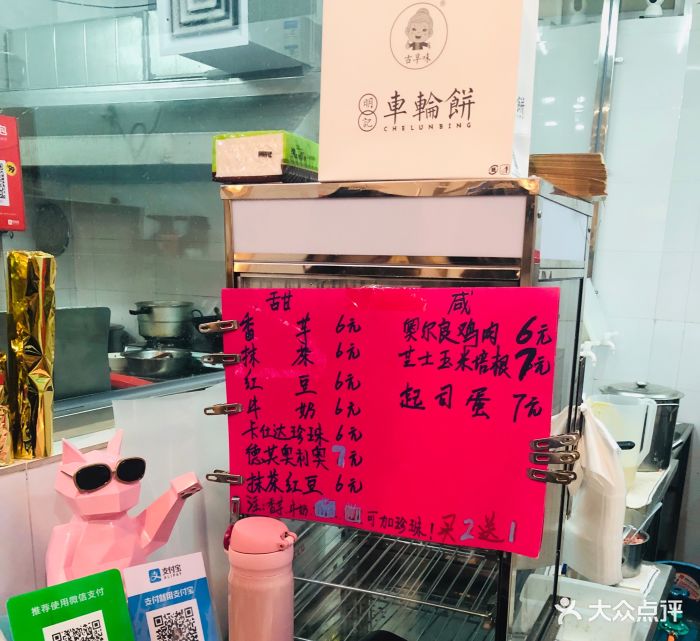 古早味
明記 車輪餅
CHELUNBING
甜甜
香芋 6元
抹茶 6元
红豆 6元
牛奶 6元
卡仕达珍珠 6元
德芙奥利奥 7元
抹茶红豆 6元
可加珍珠！买2送1
咸
奥尔良鸡肉 6元
芝士玉米培根 7元
起司蛋 7元
支付宝
ALIPAY
推荐使用微信支付
大众点评